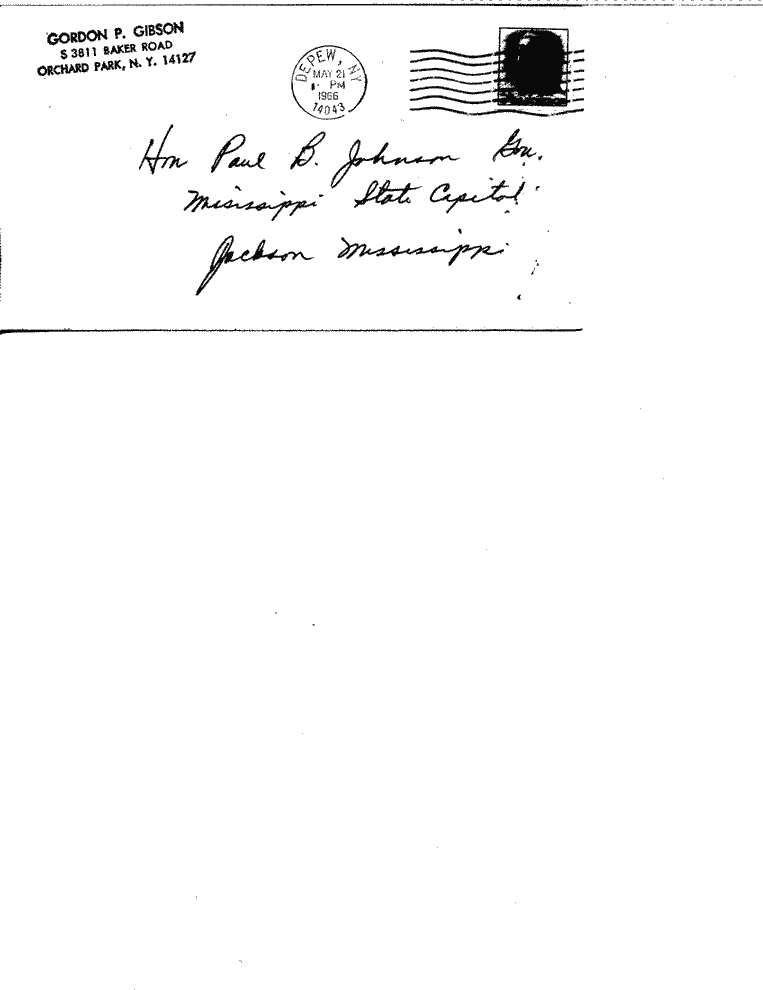 GORDON P. GIBSON
S 3811 BAKER ROAD
ORCHARD PARK, N. Y. 14127
DEPEW, NY
MAY 21
PM
1966
14043
Hon Paul B. Johnson Gov.
Mississippi State Capitol
Jackson Mississippi